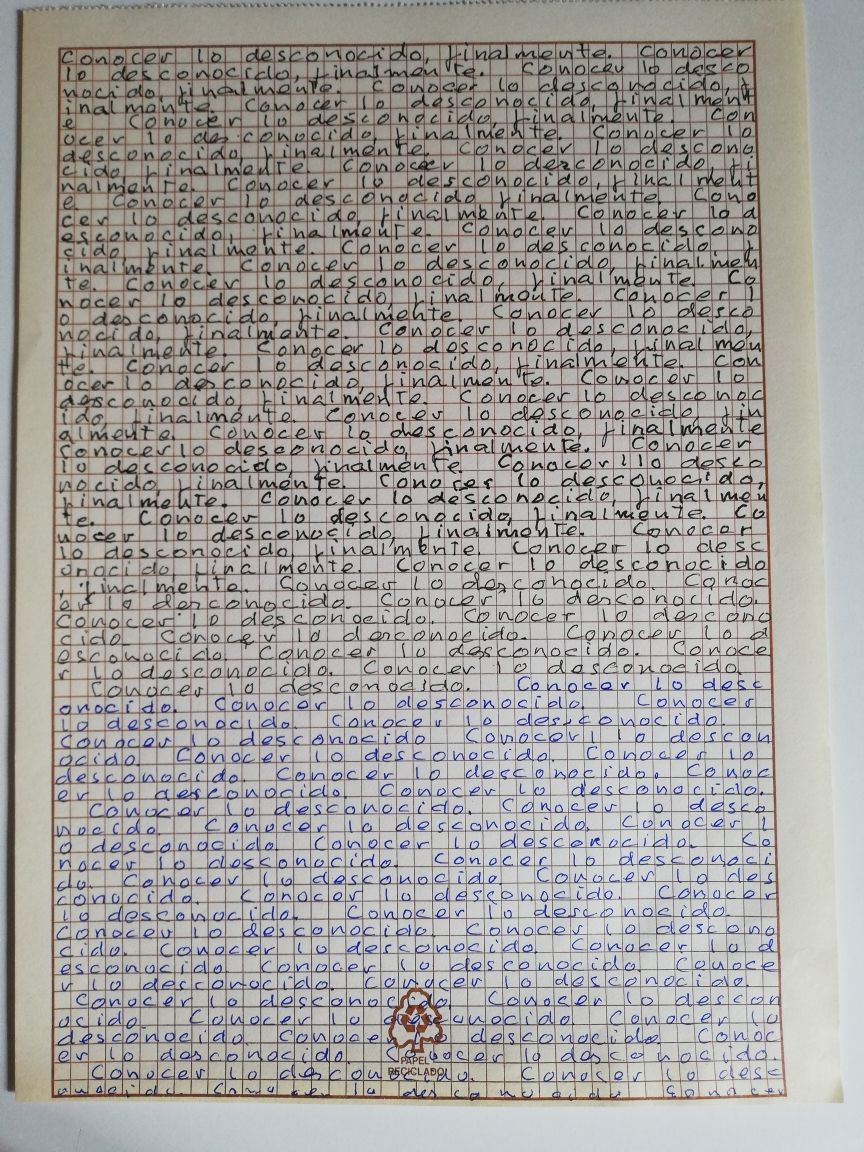 Conocer lo desconocido, finalmente. Conocer
lo desconocido, finalmente. Conocer lo desco
nocido, finalmente. Conocer lo desconocido, f
inalmente. Conocer lo desconocido, finalment
e Conocer lo desconocido, finalmente. Con
ocer lo desconocido, finalmente. Conocer lo
desconocido, finalmente. Conocer lo descono
cido, finalmente. Conocer lo desconocido, fi
nalmente. Conocer lo desconocido, finalment
e Conocer lo desconocido finalmente. Cono
cer lo desconocido, finalmente. Conocer lo d
esconocido, finalmente. Conocer lo descono
cido, finalmente. Conocer lo desconocido, f
inalmente. Conocer lo desconocido, finalmen
te. Conocer lo desconocido, finalmente. Co
nocer lo desconocido, finalmente. Conocer l
o desconocido, finalmente. Conocer lo desco
nocido, finalmente. Conocer lo desconocido,
finalmente. Conocer lo desconocido, finalmen
te. Conocer lo desconocido, finalmente. Con
ocer lo desconocido, finalmente. Conocer lo
desconocido, finalmente. Conocer lo desconoc
ido, finalmente. Conocer lo desconocido, fin
almente. Conocer lo desconocido, finalmente
Conocer lo desconocido, finalmente. Conocer
lo desconocido, finalmente. Conocer lo desco
nocido, finalmente. Conocer lo desconocido,
finalmente. Conocer lo desconocido, finalmen
te. Conocer lo desconocido, finalmente. Co
nocer lo desconocido, finalmente. Conocer
lo desconocido, finalmente. Conocer lo desc
onocido, finalmente. Conocer lo desconocido
, finalmente. Conocer lo desconocido. Conoc
er lo desconocido. Conocer lo desconocido.
Conocer lo desconocido. Conocer lo descono
cido. Conocer lo desconocido. Conocer lo d
esconocido. Conocer lo desconocido. Conoce
r lo desconocido. Conocer lo desconocido.
Conocer lo desconocido. Conocer lo desc
onocido. Conocer lo desconocido. Conocer
lo desconocido. Conocer lo desconocido.
Conocer lo desconocido Conocer lo descon
ocido. Conocer lo desconocido. Conocer lo
desconocido. Conocer lo desconocido. Conoc
er lo desconocido. Conocer lo desconocido.
Conocer lo desconocido. Conocer lo desco
nocido. Conocer lo desconocido. Conocer l
o desconocido. Conocer lo desconocido. Co
nocer lo desconocido. Conocer lo desconoci
do. Conocer lo desconocido. Conocer lo des
conocido. Conocer lo desconocido. Conocer
lo desconocido. Conocer lo desconocido.
Conocer lo desconocido. Conocer lo descono
cido. Conocer lo desconocido. Conocer lo d
esconocido. Conocer lo desconocido. Conoce
r lo desconocido. Conocer lo desconocido.
Conocer lo desconocido. Conocer lo descon
ocido. Conocer lo desconocido Conocer lo
desconocido. Conocer lo desconocido. Conoc
er lo desconocido. Conocer lo desconocido.
PAPEL
Conocer lo desconocido. Conocer lo desc
RECICLADO
onocido. Conocer lo desconocido Conocer